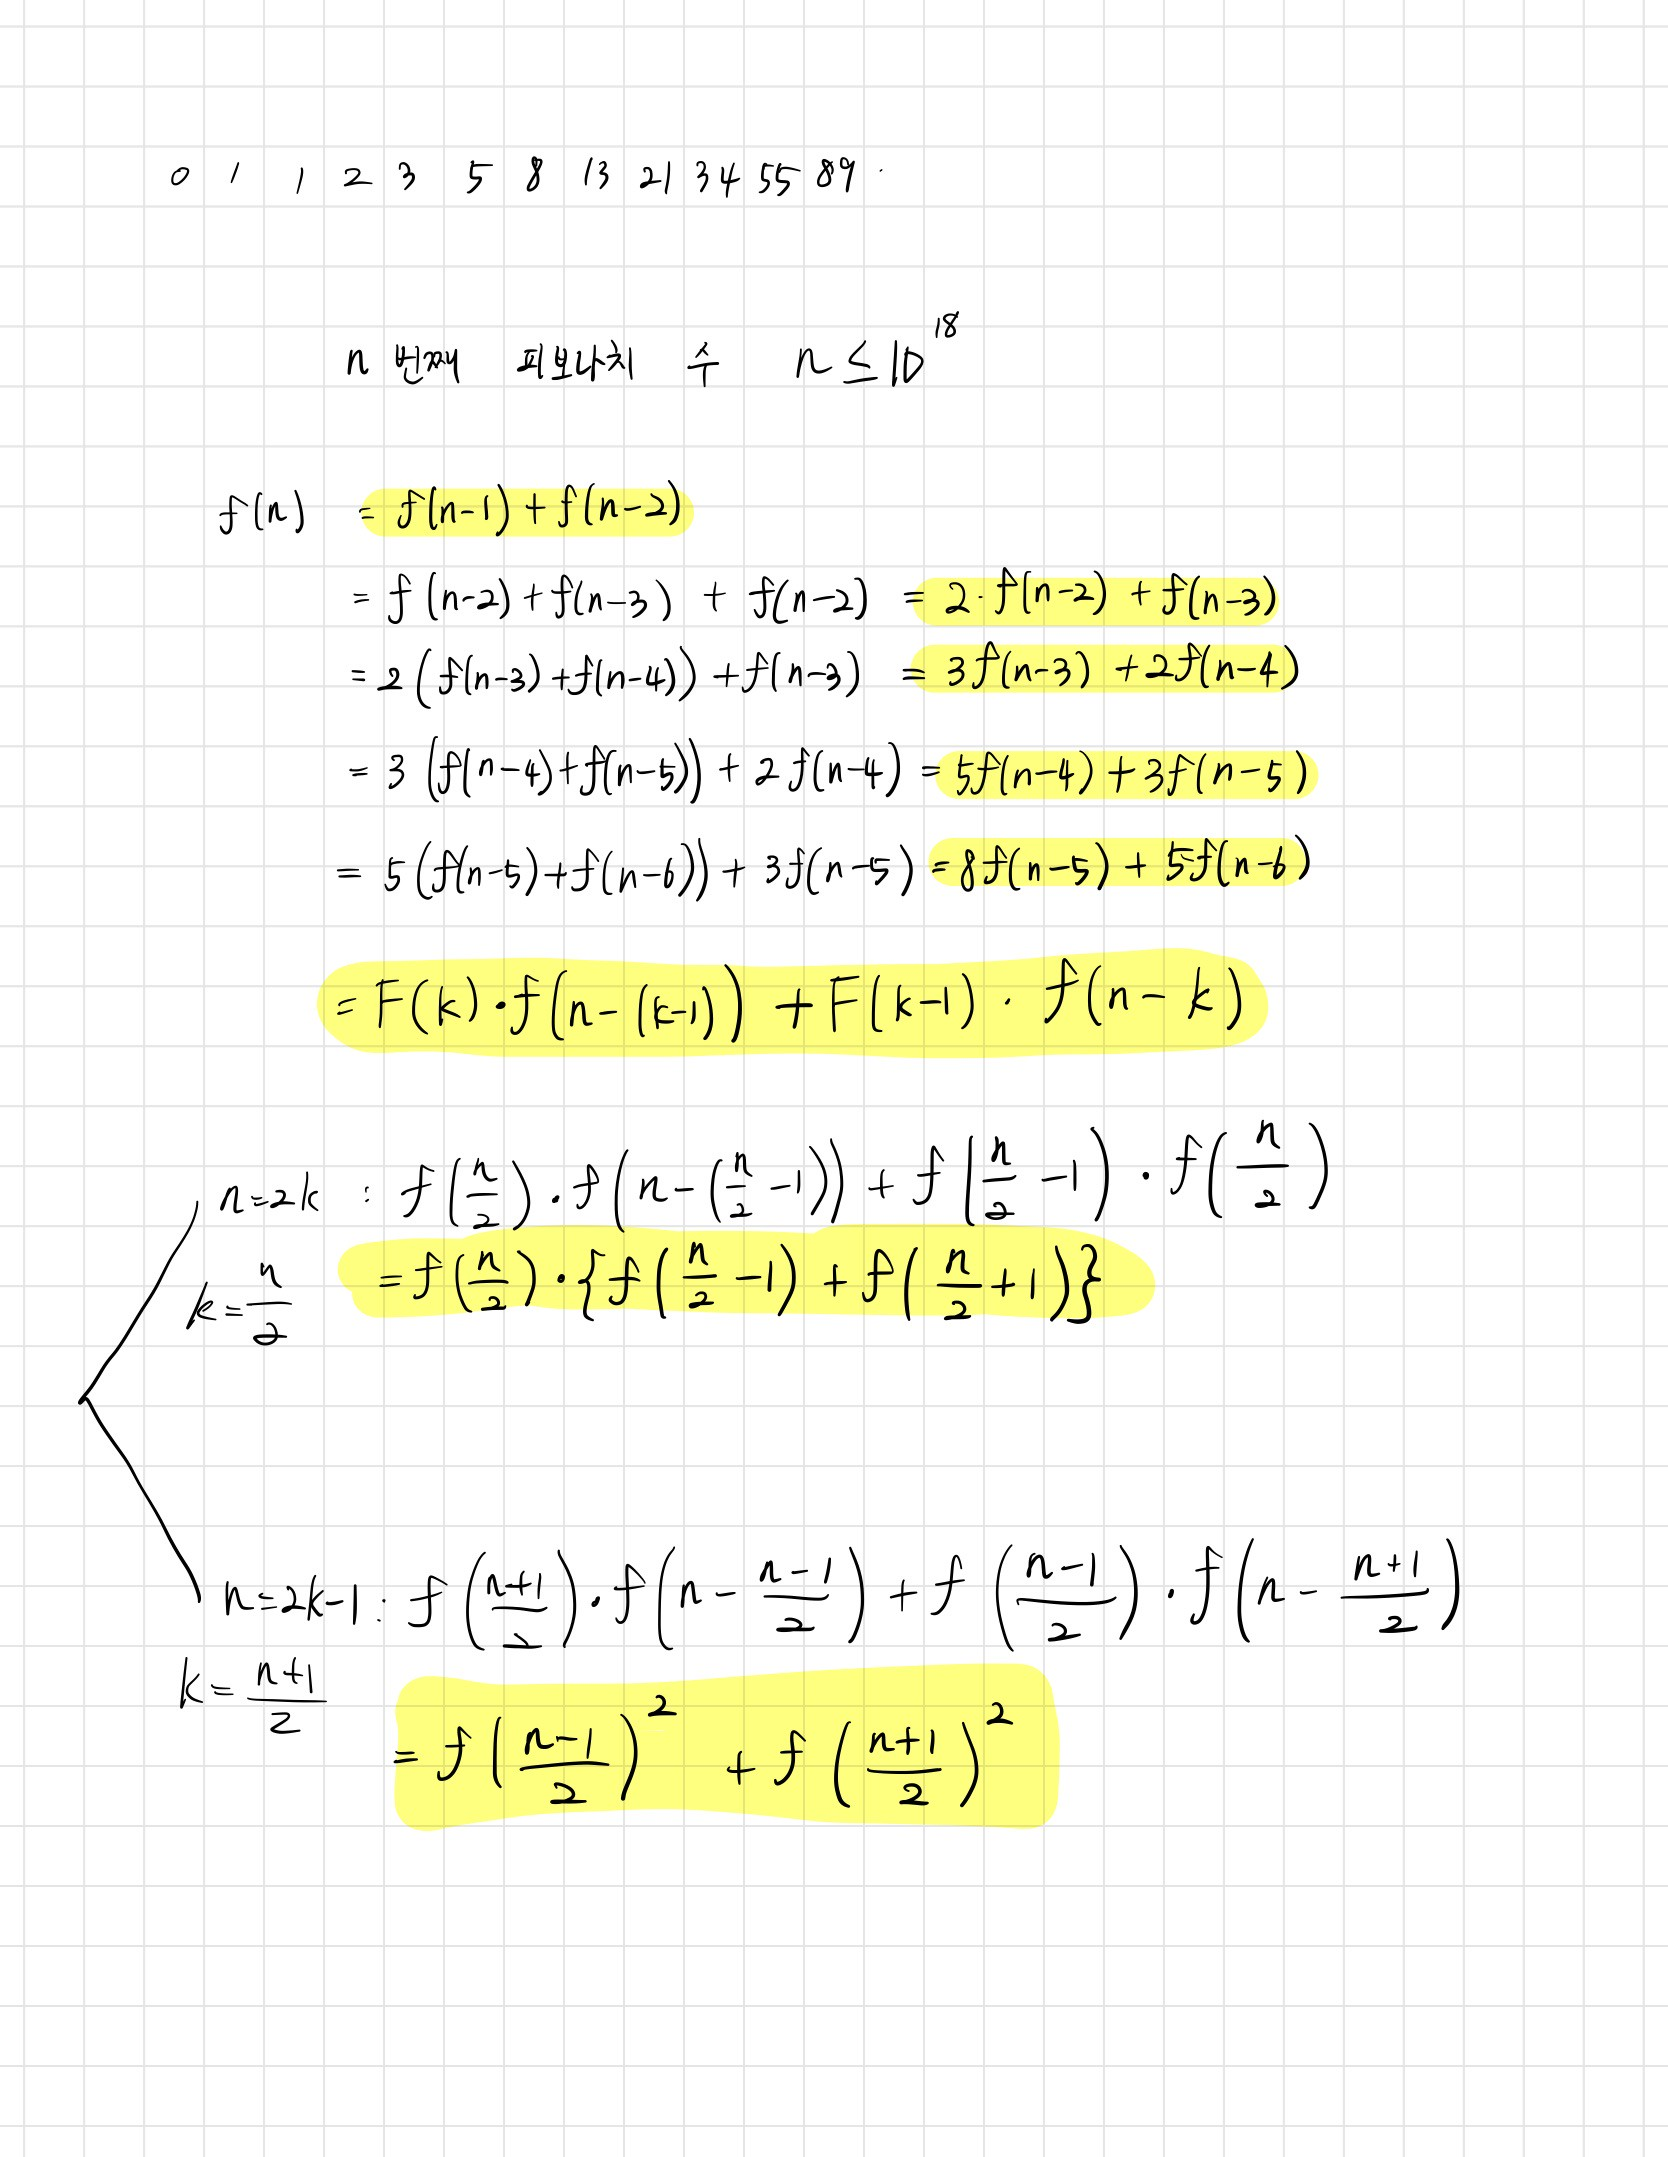 0 1 1 2 3 5 8 13 21 34 55 89
n 번째 피보나치 수 n ≤ 10^18
f(n) = f(n-1) + f(n-2)
= f(n-2) + f(n-3) + f(n-2) = 2·f(n-2) + f(n-3)
= 2(f(n-3) + f(n-4)) + f(n-3) = 3f(n-3) + 2f(n-4)
= 3(f(n-4) + f(n-5)) + 2f(n-4) = 5f(n-4) + 3f(n-5)
= 5(f(n-5) + f(n-6)) + 3f(n-5) = 8f(n-5) + 5f(n-6)
= F(k)·f(n-(k-1)) + F(k-1)·f(n-k)
n=2k : f(n/2)·f(n-(n/2-1)) + f(n/2-1)·f(n/2)
k=n/2 = f(n/2)·{f(n/2-1) + f(n/2+1)}
n=2k-1 : f((n+1)/2)·f(n-(n-1)/2) + f((n-1)/2)·f(n-(n+1)/2)
k=(n+1)/2
= f((n-1)/2)^2 + f((n+1)/2)^2